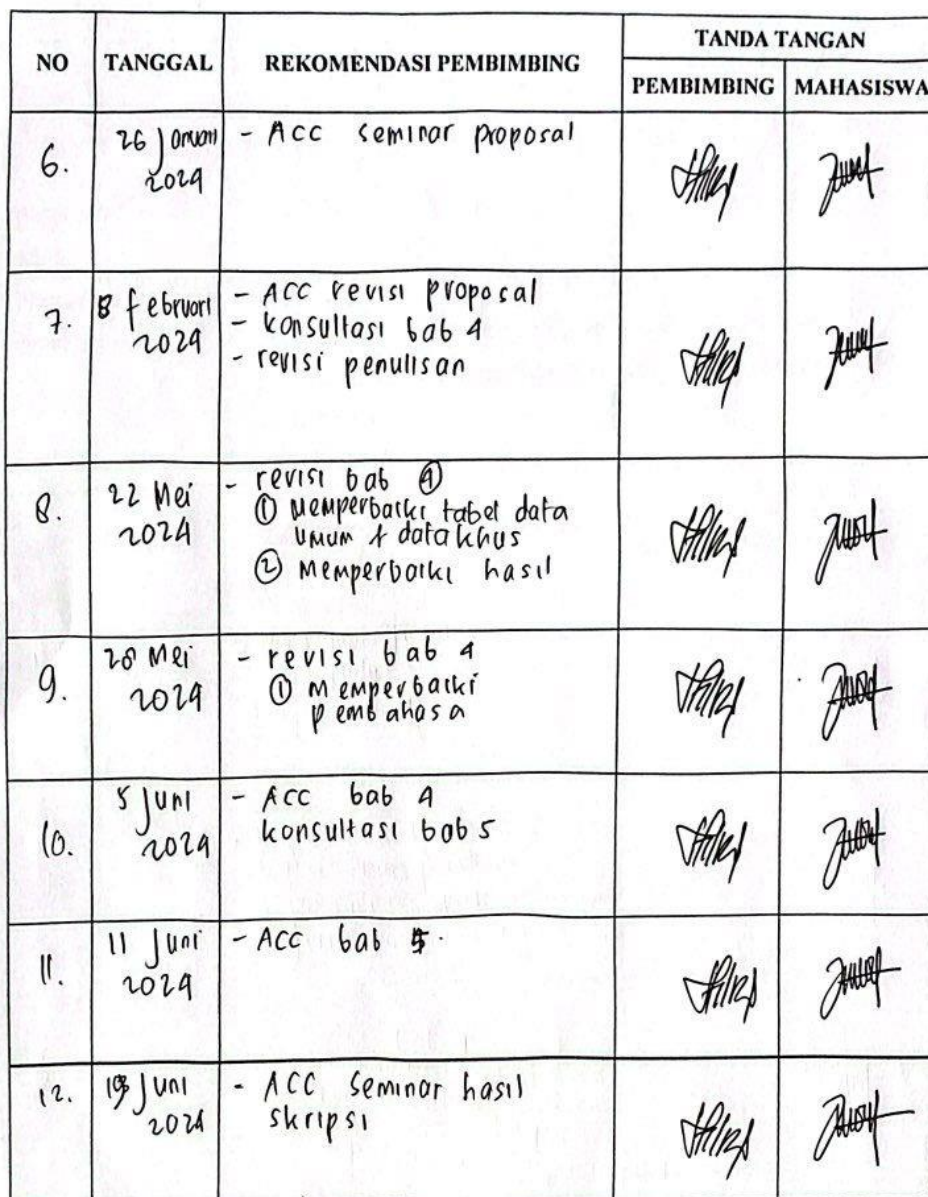 NO TANGGAL REKOMENDASI PEMBIMBING TANDA TANGAN
PEMBIMBING MAHASISWA
6. 26 Januari 2024
- ACC seminar proposal
7. 8 Februari 2024
- ACC revisi proposal
- konsultasi bab 4
- revisi penulisan
8. 22 Mei 2024
- revisi bab 4
① Memperbaiki tabel data
umum & data khus
② Memperbaiki hasil
9. Mei 2024
- revisi bab 4
① Memperbaiki
pembahasa
10. 5 Juni 2024
- ACC bab 4
konsultasi bab 5
11. 11 Juni 2024
- ACC bab 5.
12. Juni 2024
- ACC seminar hasil
skripsi